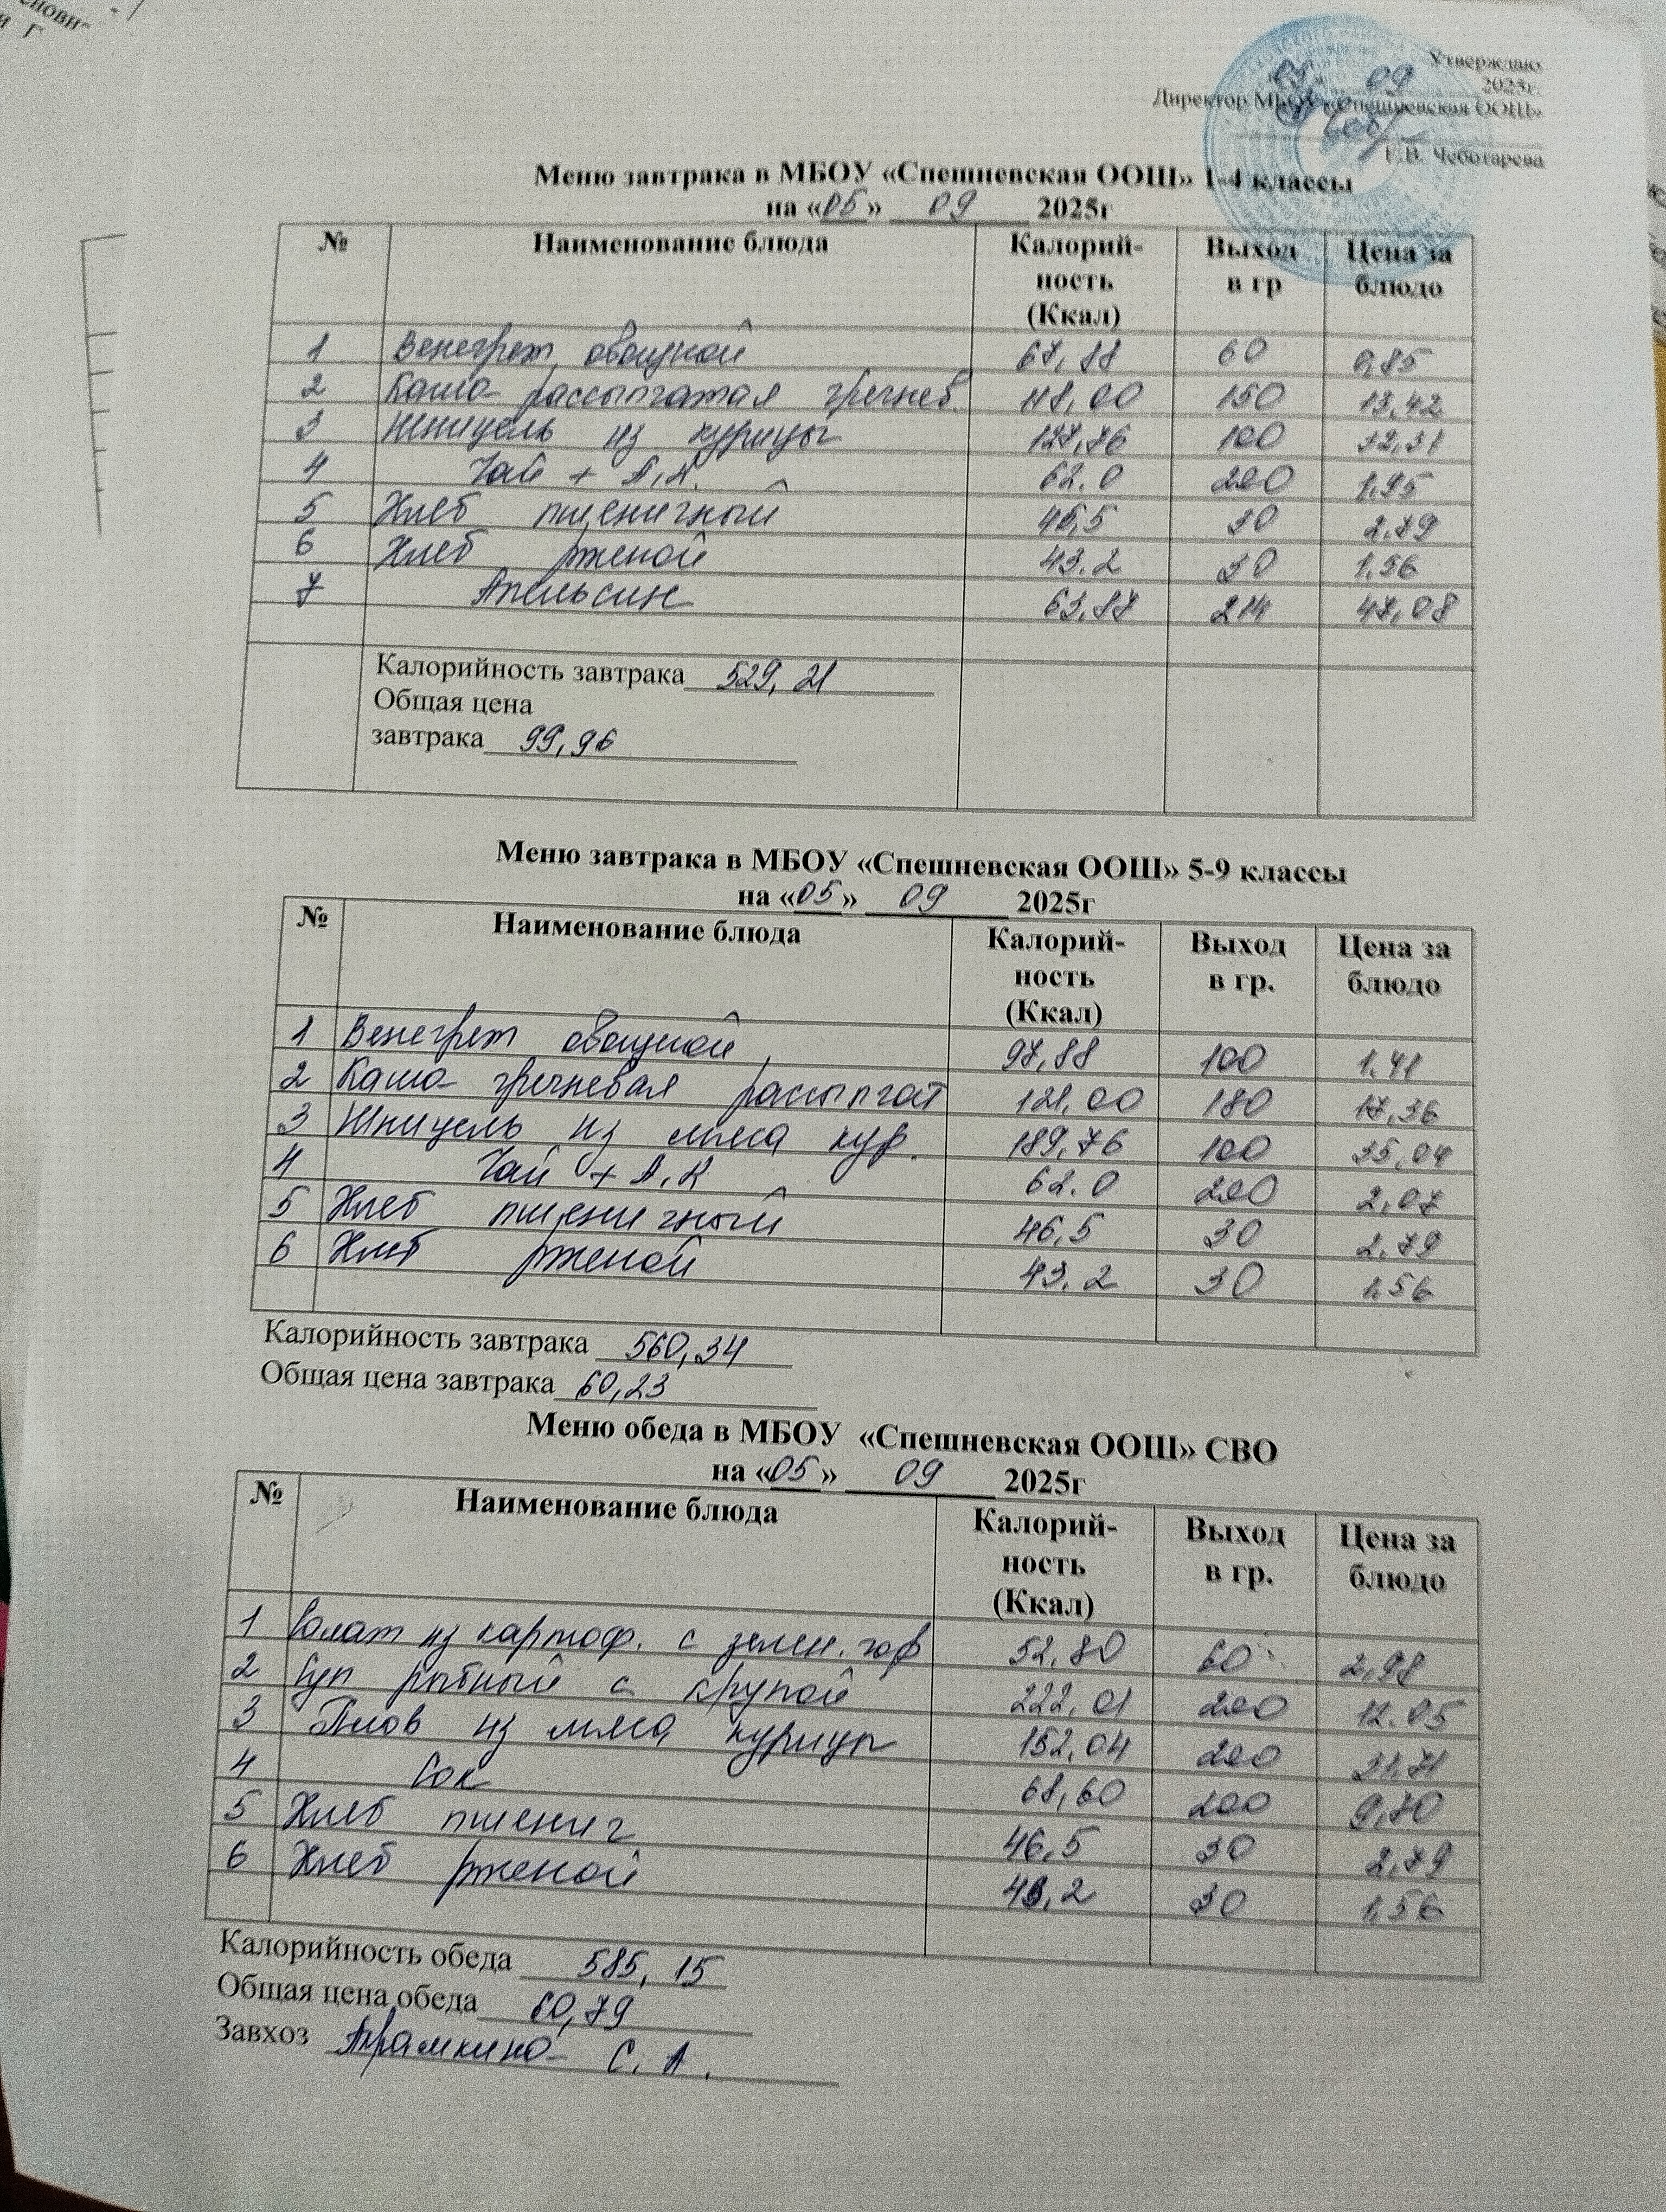 Утверждаю
«05» 09 2025г.
Директор МБОУ «Спешневская ООШ»
Е.В. Чеботарева
Меню завтрака в МБОУ «Спешневская ООШ» 1-4 классы
на «05» 09 2025г
№ Наименование блюда Калорий-ность (Ккал) Выход в гр Цена за блюдо
1 Венегрет овощной 67,88 60 0,85
2 Каша рассыпчатая гречнев. 118,00 150 13,42
3 Шницель из курицы 127,76 100 32,31
4 Чай + А,К. 62.0 200 1,95
5 Хлеб пшеничный 46,5 30 2.79
6 Хлеб рженой 43.2 30 1,56
7 Апельсин 63,87 214 47,08
Калорийность завтрака 529,21
Общая цена
завтрака 99,96
Меню завтрака в МБОУ «Спешневская ООШ» 5-9 классы
на «05» 09 2025г
№ Наименование блюда Калорий-ность (Ккал) Выход в гр. Цена за блюдо
1 Венегрет овощной 97,88 100 1.41
2 Каша гречневая рассыпчат 121,00 180 17,36
3 Шницель из мяса кур. 189,76 100 35,04
4 Чай + А,К 62.0 200 2,07
5 Хлеб пшеничный 46,5 30 2.79
6 Хлеб рженой 43.2 30 1,56
Калорийность завтрака 560,34
Общая цена завтрака 60,23
Меню обеда в МБОУ «Спешневская ООШ» СВО
на «05» 09 2025г
№ Наименование блюда Калорий-ность (Ккал) Выход в гр. Цена за блюдо
1 Салат из картоф. с зелен. гор 52,80 60 2,98
2 Суп рыбный с крупой 222,01 200 12.05
3 Плов из мяса курицы 152,04 200 31,71
4 Сок 68,60 200 9,70
5 Хлеб пшенич 46,5 30 2,79
6 Хлеб рженой 43,2 30 1,56
Калорийность обеда 585,15
Общая цена обеда 60,79
Завхоз С.А.